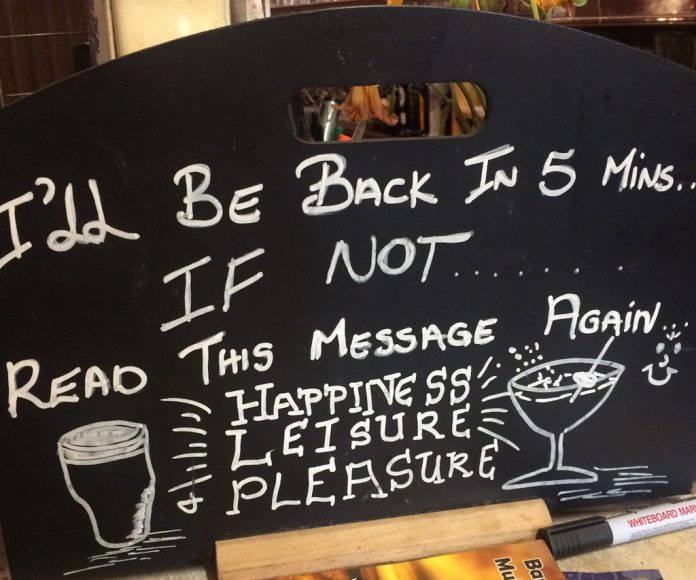 I'll BE BACK IN 5 MINS..
IF NOT........
READ THIS MESSAGE AGAIN
HAPPINESS
LEISURE
PLEASURE
WHITEBOARD MAR
Ba
Mu